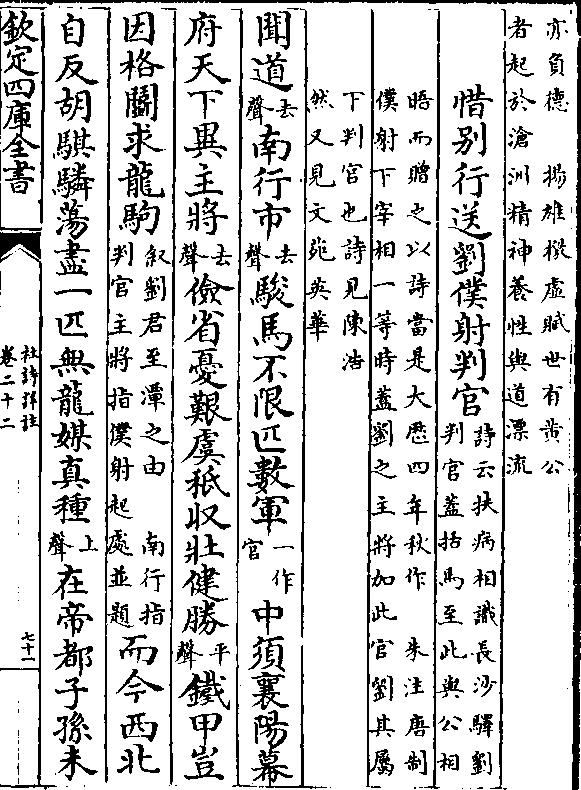 亦負德　揚雄檄虛賦世有黃公
者起於滄洲精神養性與道漂流
惜别行送劉僕射判官
詩云扶病相識長沙驛劉
判官蓋括馬至此與公相
晤而贈之以詩當是大厯四年秋作　朱注唐制
僕射下宰相一等時蓋劉之主將加此官劉其屬
下判官也詩見陳浩
然又見文苑英華
聞道去聲南行市去聲駿馬不限匹數軍一作官中須襄陽幕
府天下異主將去聲儉省憂艱虞秪収壯健勝平聲鐵甲豈
因格鬬求龍駒叙劉君至潭之由　南行指判官主將指僕射起處並題而今西北
自反胡騏驎蕩盡一匹無龍媒真種上聲在帝都子孫未
欽定四庫全書
杜詩詳註
卷二十二
七十一